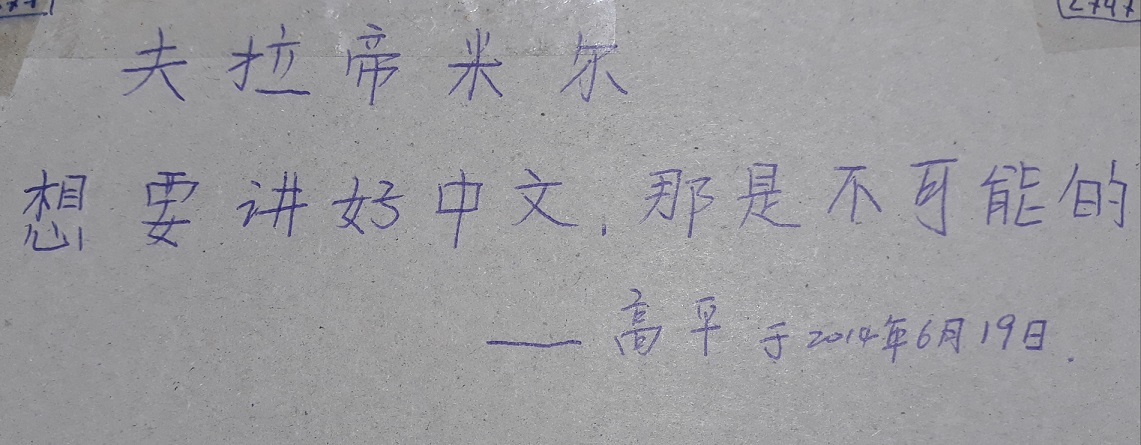 夫拉帝米尔
想要讲好中文,那是不可能的
——高早于2014年6月19日.